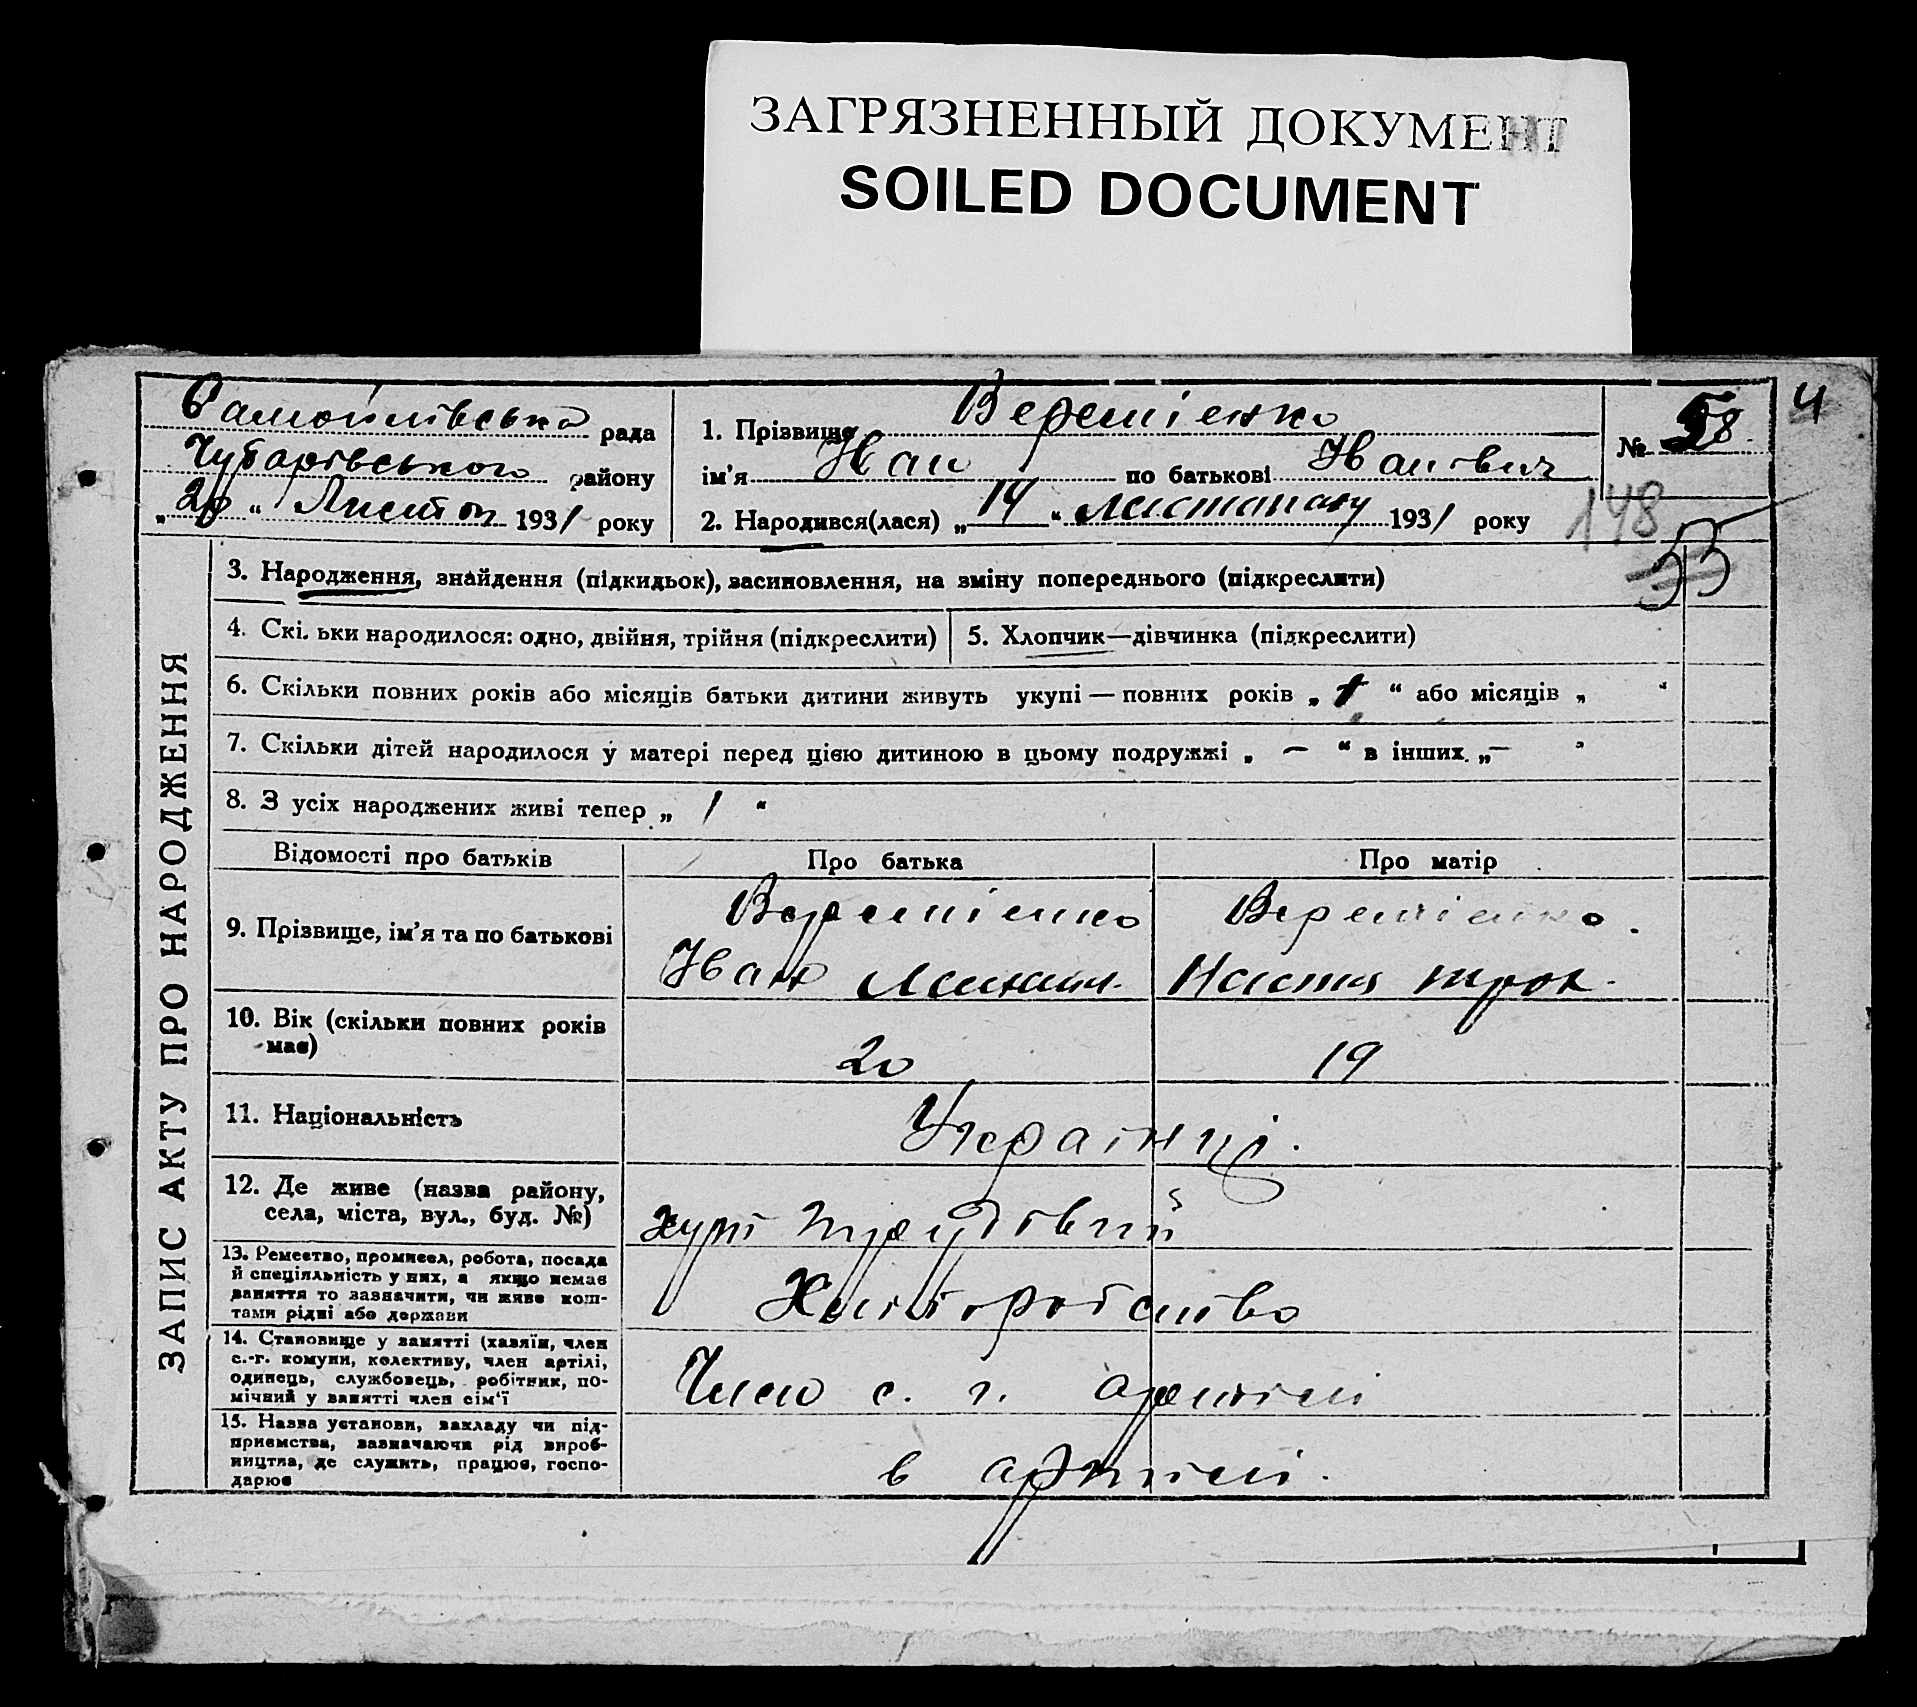 ЗАГРЯЗНЕННЫЙ ДОКУМЕНТ
SOILED DOCUMENT
4
Самойлівська рада
Чубарівського району
„20“ Листоп 1931 року
1. Прізвище Веремієнко
ім’я Іван по батькові Іванович
2. Народився(лася) „14“ листопаду 1931 року
№ 58
148
53
ЗАПИС АКТУ ПРО НАРОДЖЕННЯ
3. Народження, знайдення (підкидьок), засиновлення, на зміну попереднього (підкреслити)
4. Скі. ьки народилося: одно, двійня, трійня (підкреслити)
5. Хлопчик—дівчинка (підкреслити)
6. Скільки повних років або місяців батьки дитини живуть укупі — повних років „ 1 “ або місяців „ “
7. Скільки дітей народилося у матері перед цією дитиною в цьому подружжі „ — “ в інших „— “
8. З усіх народжених живі тепер „ 1 “
Відомості про батьків
Про батька
Про матір
9. Прізвище, ім’я та по батькові
Веремієнко
Іван
Веремієнко
Настя трох.
10. Вік (скільки повних років
має)
20
19
11. Національність
Українці.
12. Де живе (назва району,
села, міста, вул., буд. №)
хут
13. Ремество, промисел, робота, посада
й спеціяльність у них, а якщо немає
заняття то зазначити, чи живе кош-
тами рідні або держави
Хліборобство
14. Становище у занятті (хазяїн, член
с.-г. комуни, колективу, член артілі,
одинець, службовець, робітник, по-
мічний у занятті член сім‘ї
Член с. г. артілі
15. Назва установи, закладу чи під-
приємства, зазначаючи рід вироб-
ництва, де служить, працює, госпо-
дарює
в артілі.